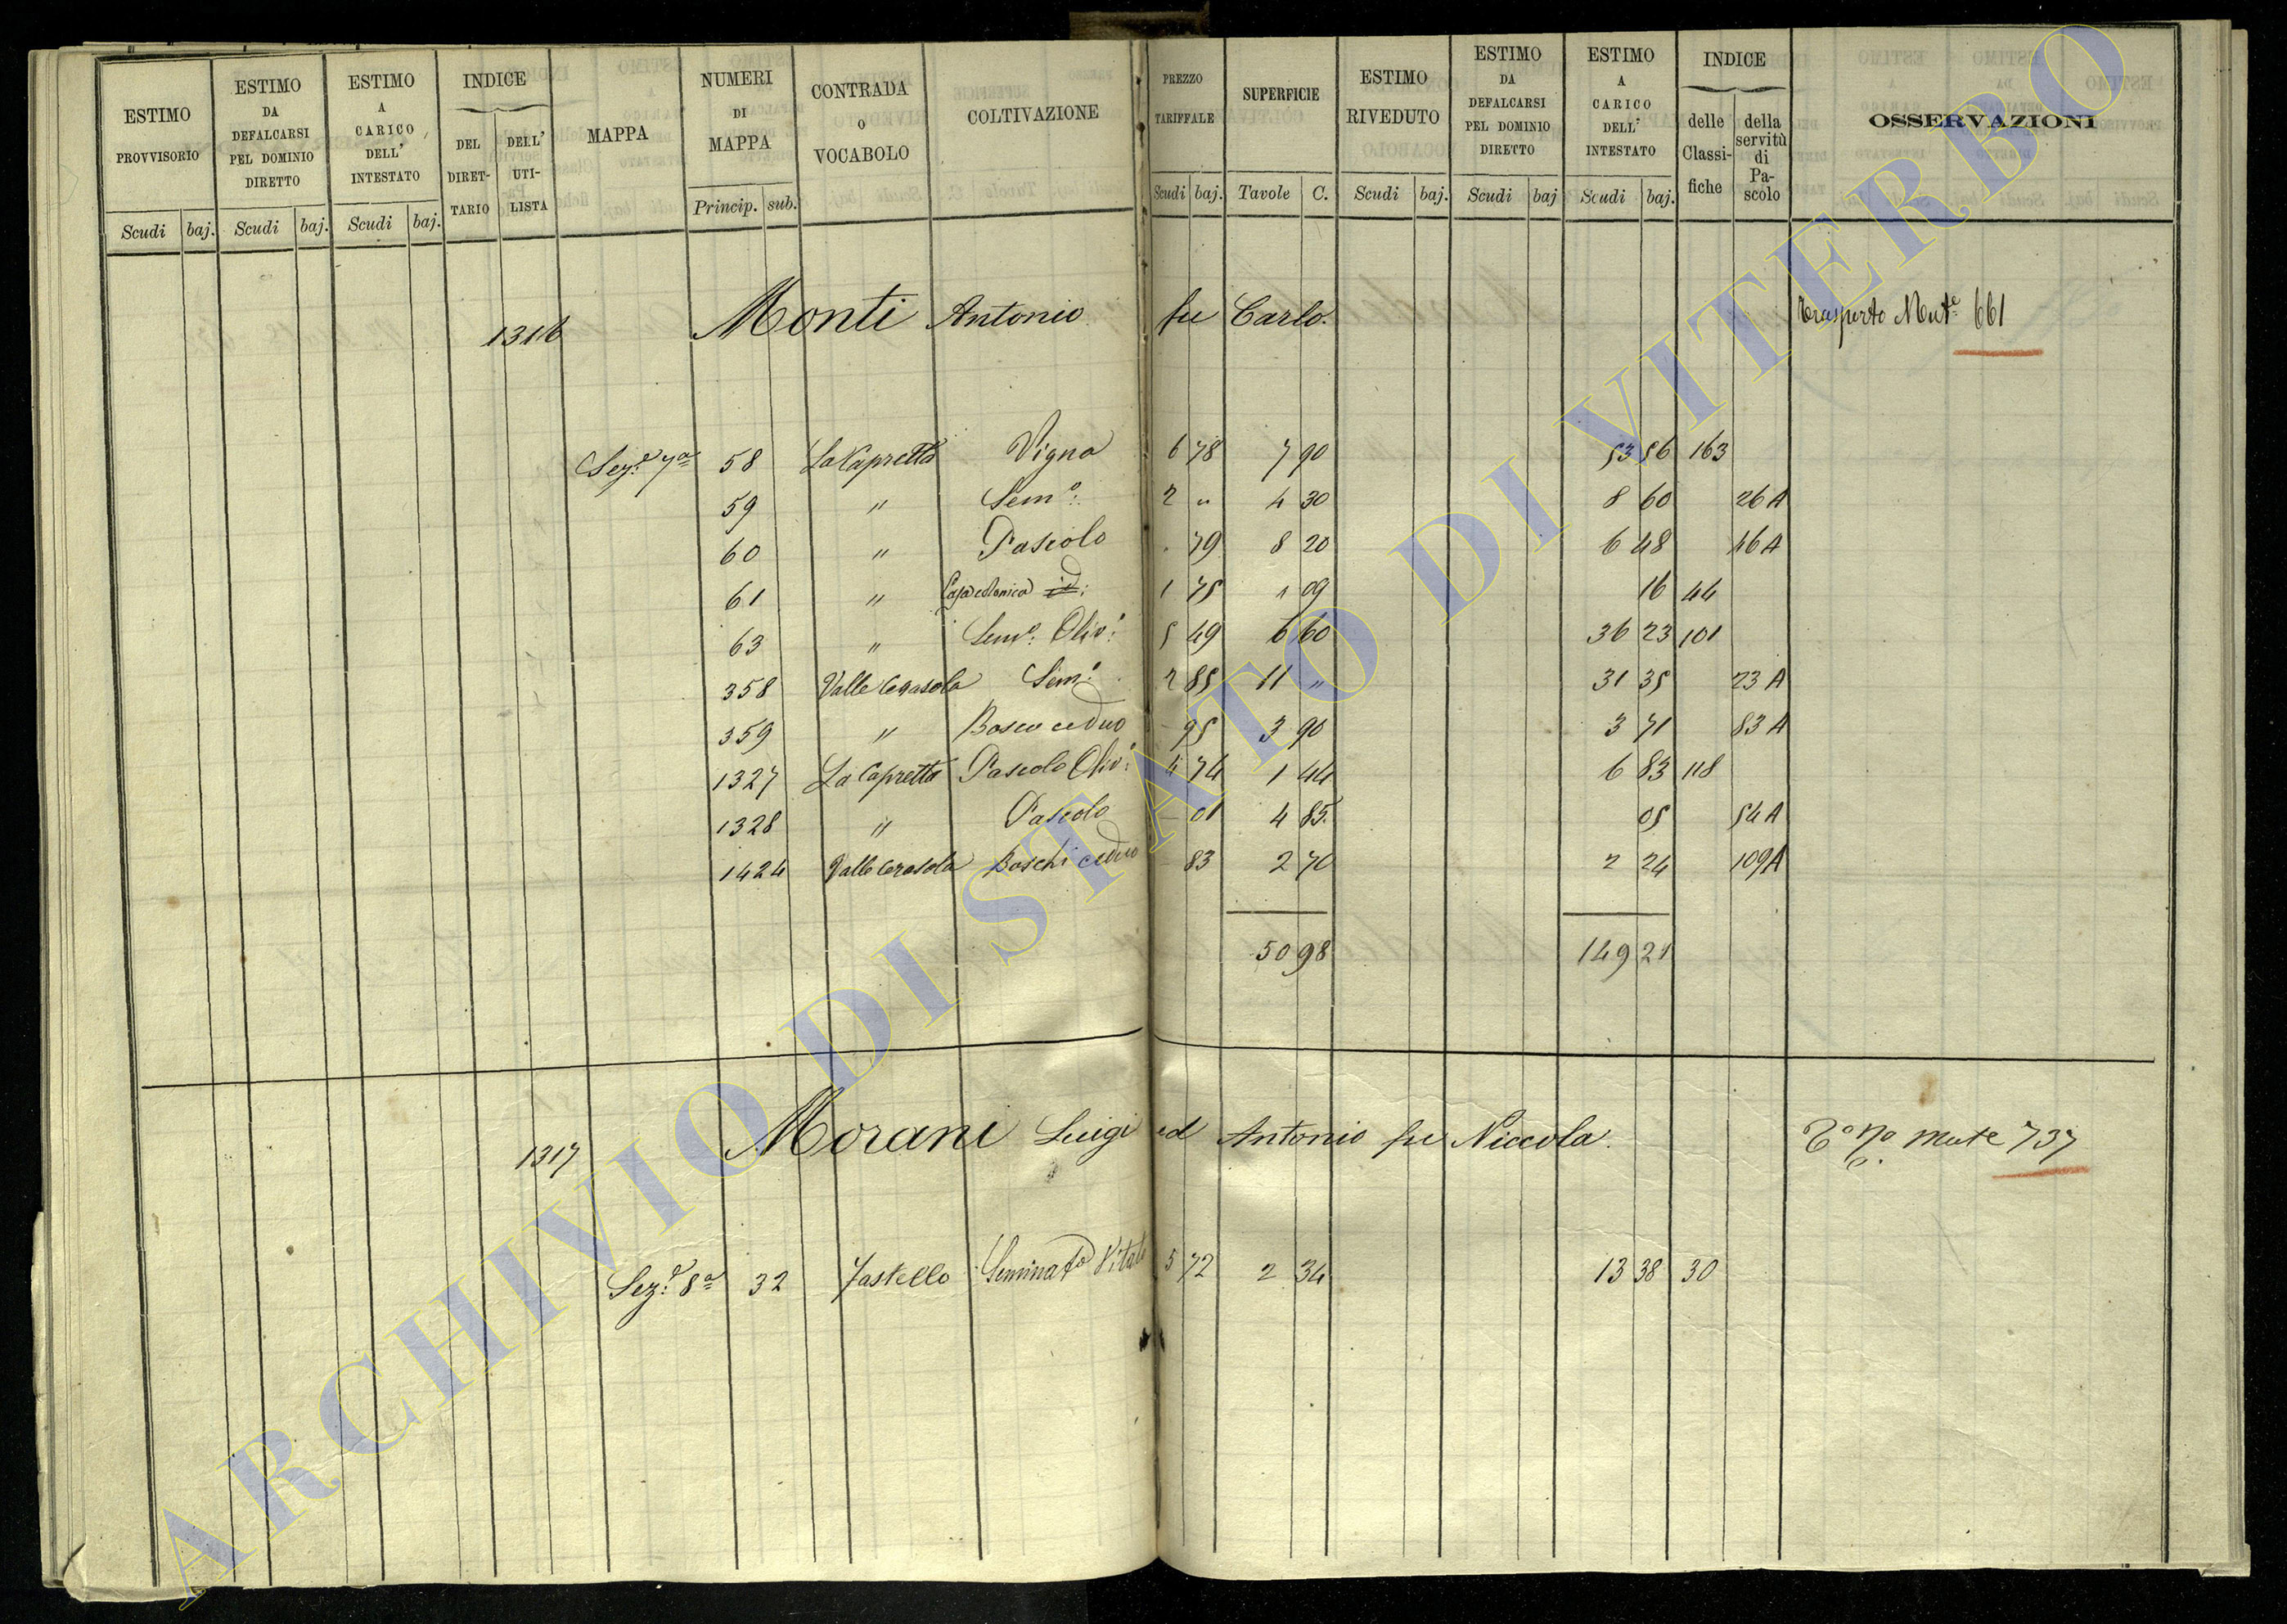 ESTIMO PROVVISORIO
ESTIMO DA DEFALCARSI PEL DOMINIO DIRETTO
ESTIMO A CARICO DELL' INTESTATO
INDICE
DEL DIRET- TARIO
DELL' UTI- LISTA
MAPPA
NUMERI DI MAPPA
CONTRADA O VOCABOLO
COLTIVAZIONE
PREZZO TARIFFALE
SUPERFICIE
ESTIMO RIVEDUTO
ESTIMO DA DEFALCARSI PEL DOMINIO DIRETTO
ESTIMO A CARICO DELL' INTESTATO
INDICE
delle Classi- fiche
della servitù di Pa- scolo
OSSERVAZIONI
Scudi baj. Scudi baj. Scudi baj. Princip. sub. Scudi baj. Tavole C. Scudi baj. Scudi baj Scudi baj.
1316 Monti Antonio fu Carlo. Trasporto Mut.e 661
Sez.e 7a 58 La Capretta Vigna 6 78 7 90 53 56 163
59 " Sem.o: 2 " 4 30 8 60 26 A
60 " Pascolo . 79 8 20 6 48 46 A
61 " Casa colonica id: 1 75 " 09 16 44
63 " Sem.o: Oliv.o: 5 49 6 60 36 23 101
358 Valle Cerasola Sem.o 2 85 11 " 31 35 23 A
359 " Bosco ceduo - 95 3 90 3 71 83 A
1327 La Capretta Pascolo Oliv.o: 4 74 1 44 6 83 118
1328 " Pascolo - 01 4 85 05 54 A
1424 Valle Cerasola Boschi ceduo - 83 2 70 2 24 109 A
50 98 149 21
1317 Morani Luigi ed Antonio fu Niccola. Mut.e 737
Sez.e 8a 32 Seminato Vitato 5 72 2 34 13 38 30
ARCHIVIO DI STATO DI VITERBO